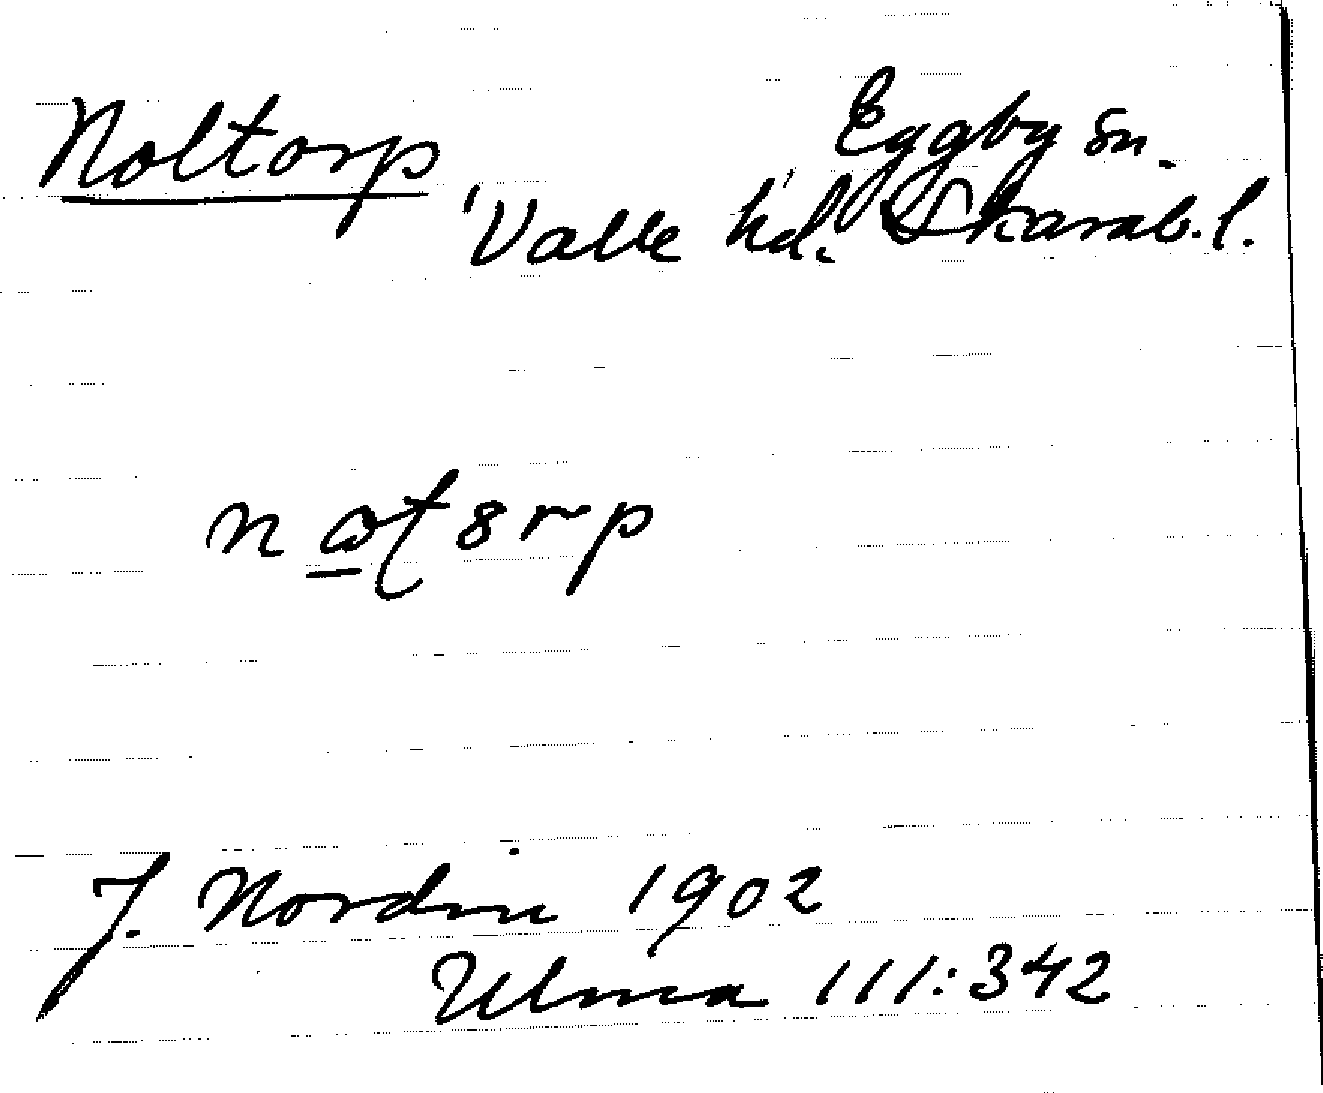 Noltorp Eggby sn.
Valle hd. Skarab. l.
J. Nordin 1902
Ulma 111:342